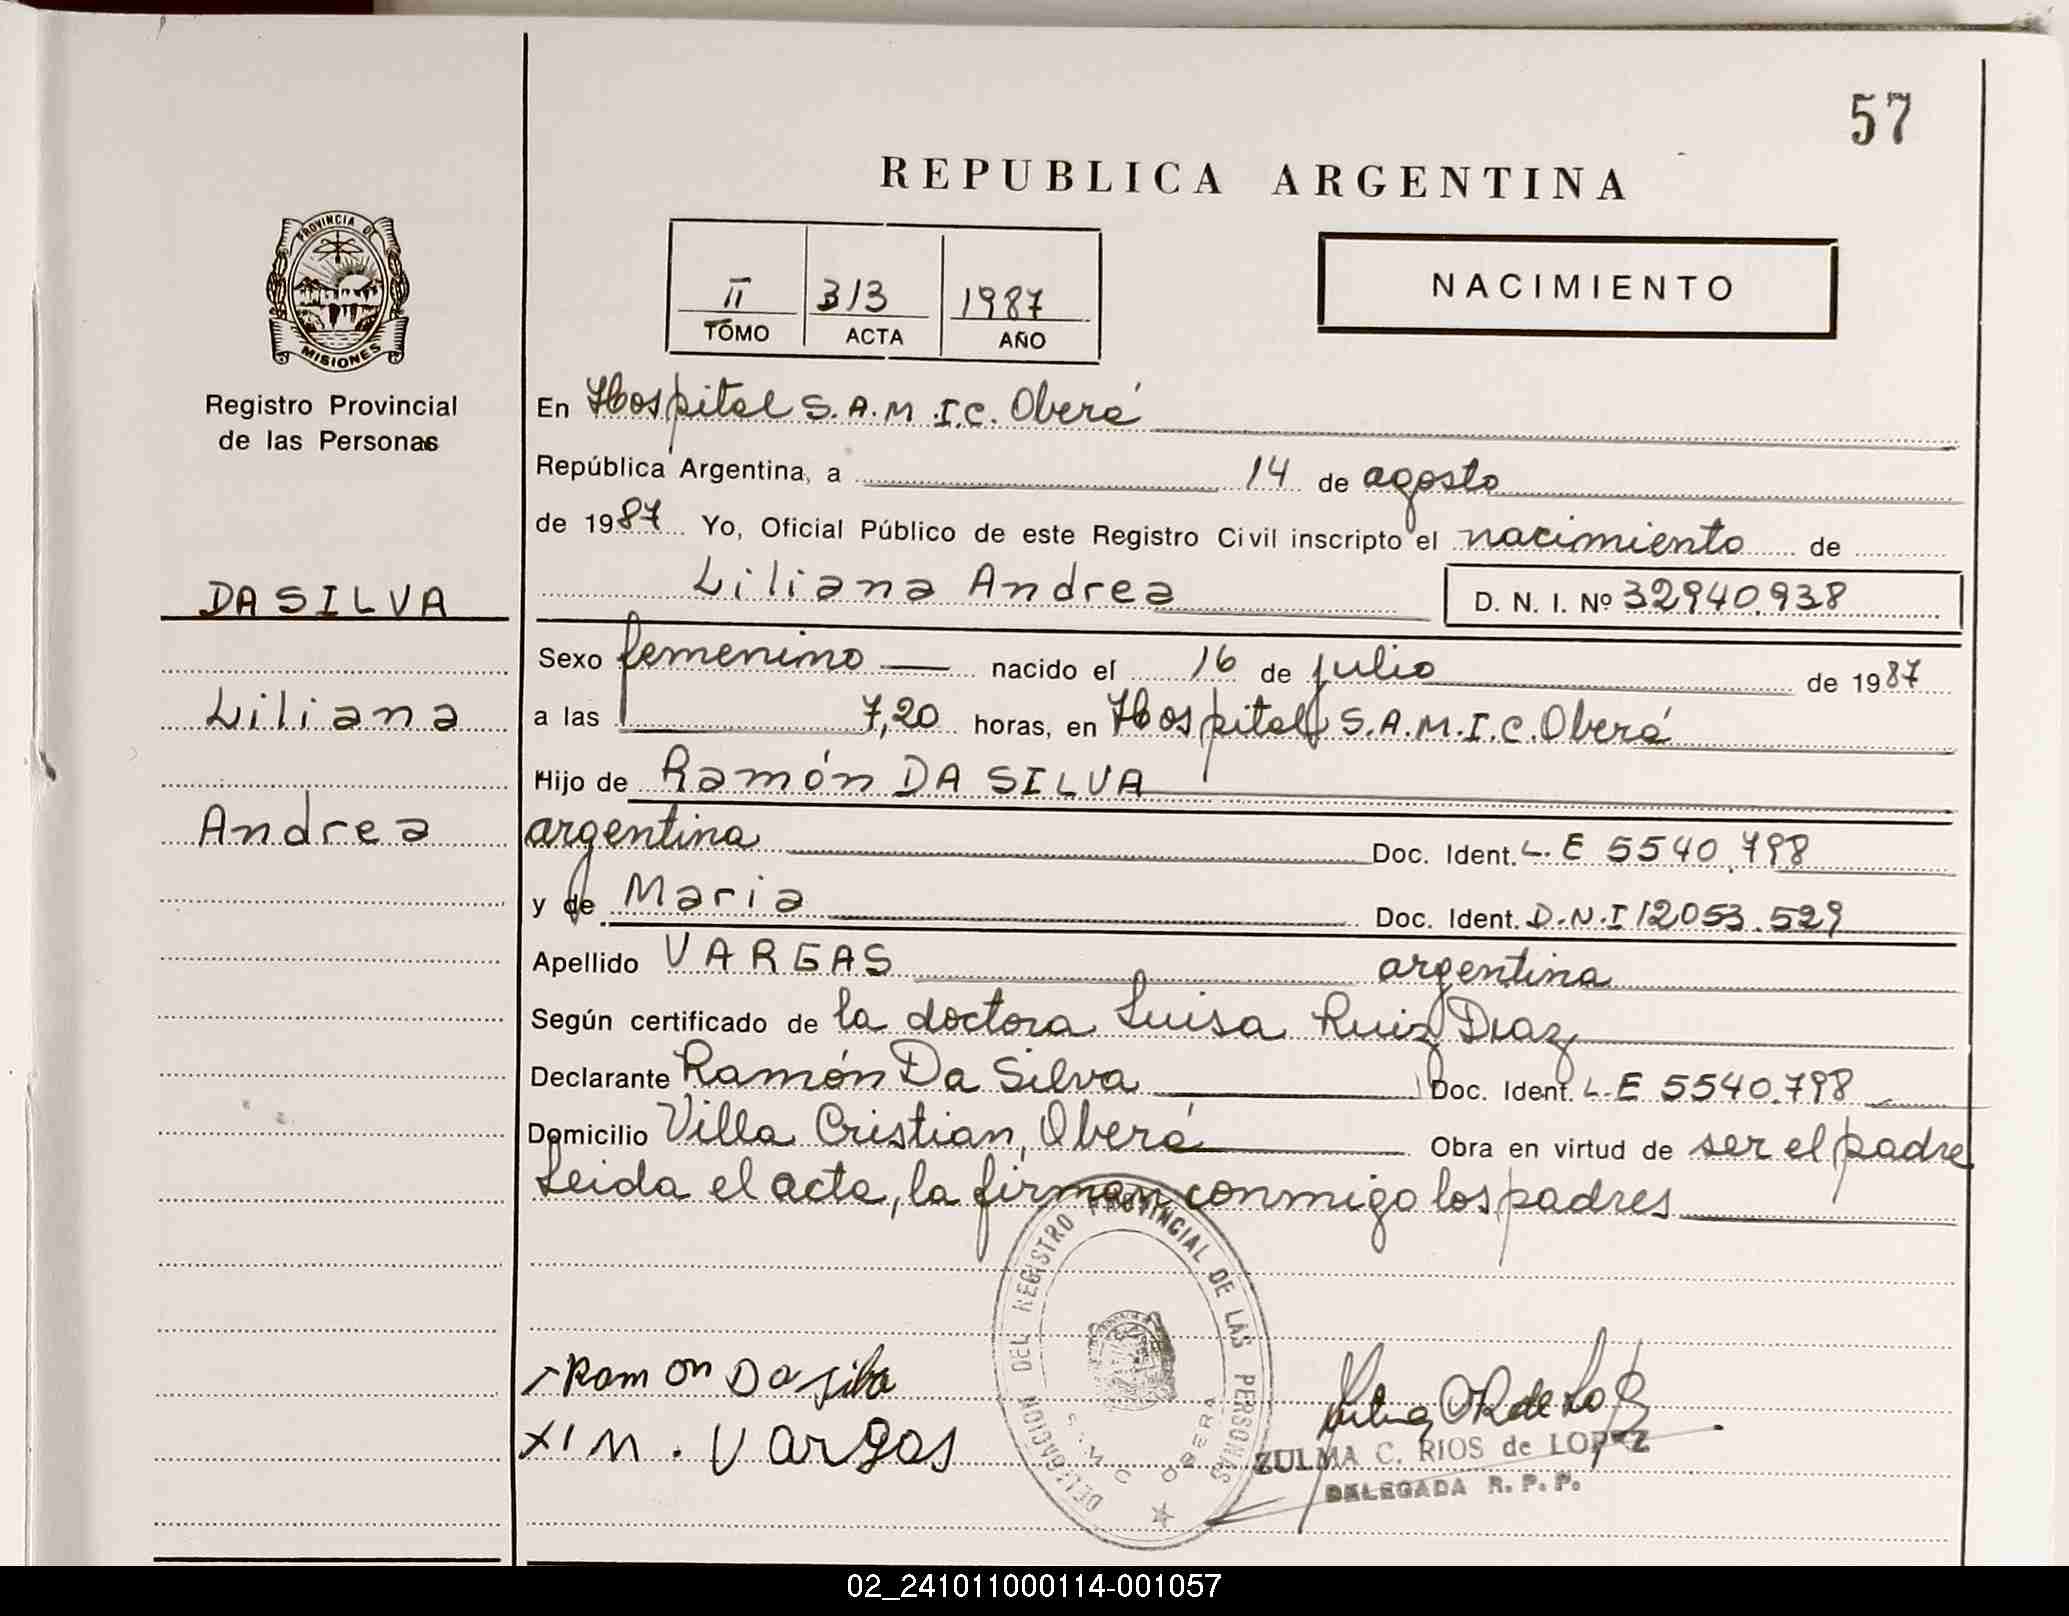 57
REPUBLICA ARGENTINA
PROVINCIA DE
MISIONES
Registro Provincial
de las Personas
II 313 1987
TOMO ACTA AÑO
NACIMIENTO
En Hospital S.A.M.I.C. Oberá
República Argentina, a 14 de agosto
de 1987 Yo, Oficial Público de este Registro Civil inscripto el nacimiento de
DA SILVA
Liliana Andrea D. N. I. Nº 32940.938
Sexo femenino nacido el 16 de julio de 1987
Liliana
a las 7,20 horas, en Hospital S.A.M.I.C. Oberá
Hijo de Ramón DA SILVA
Andrea
argentina Doc. Ident. L.E 5540.798
y de Maria Doc. Ident. D.N.I 12053.529
Apellido VARGAS argentina
Según certificado de la doctora Luisa Ruiz Diaz
Declarante Ramón Da Silva Doc. Ident. L.E 5540.798
Domicilio Villa Cristian, Oberá Obra en virtud de ser el padre
Leida el acta, la firman conmigo los padres
DELEGACION DEL REGISTRO PROVINCIAL DE LAS PERSONAS
OBERA
Ramon Da silva
M. Vargas
ZULMA C. RIOS de LOPEZ
DELEGADA R. P. P.
02_241011000114-001057